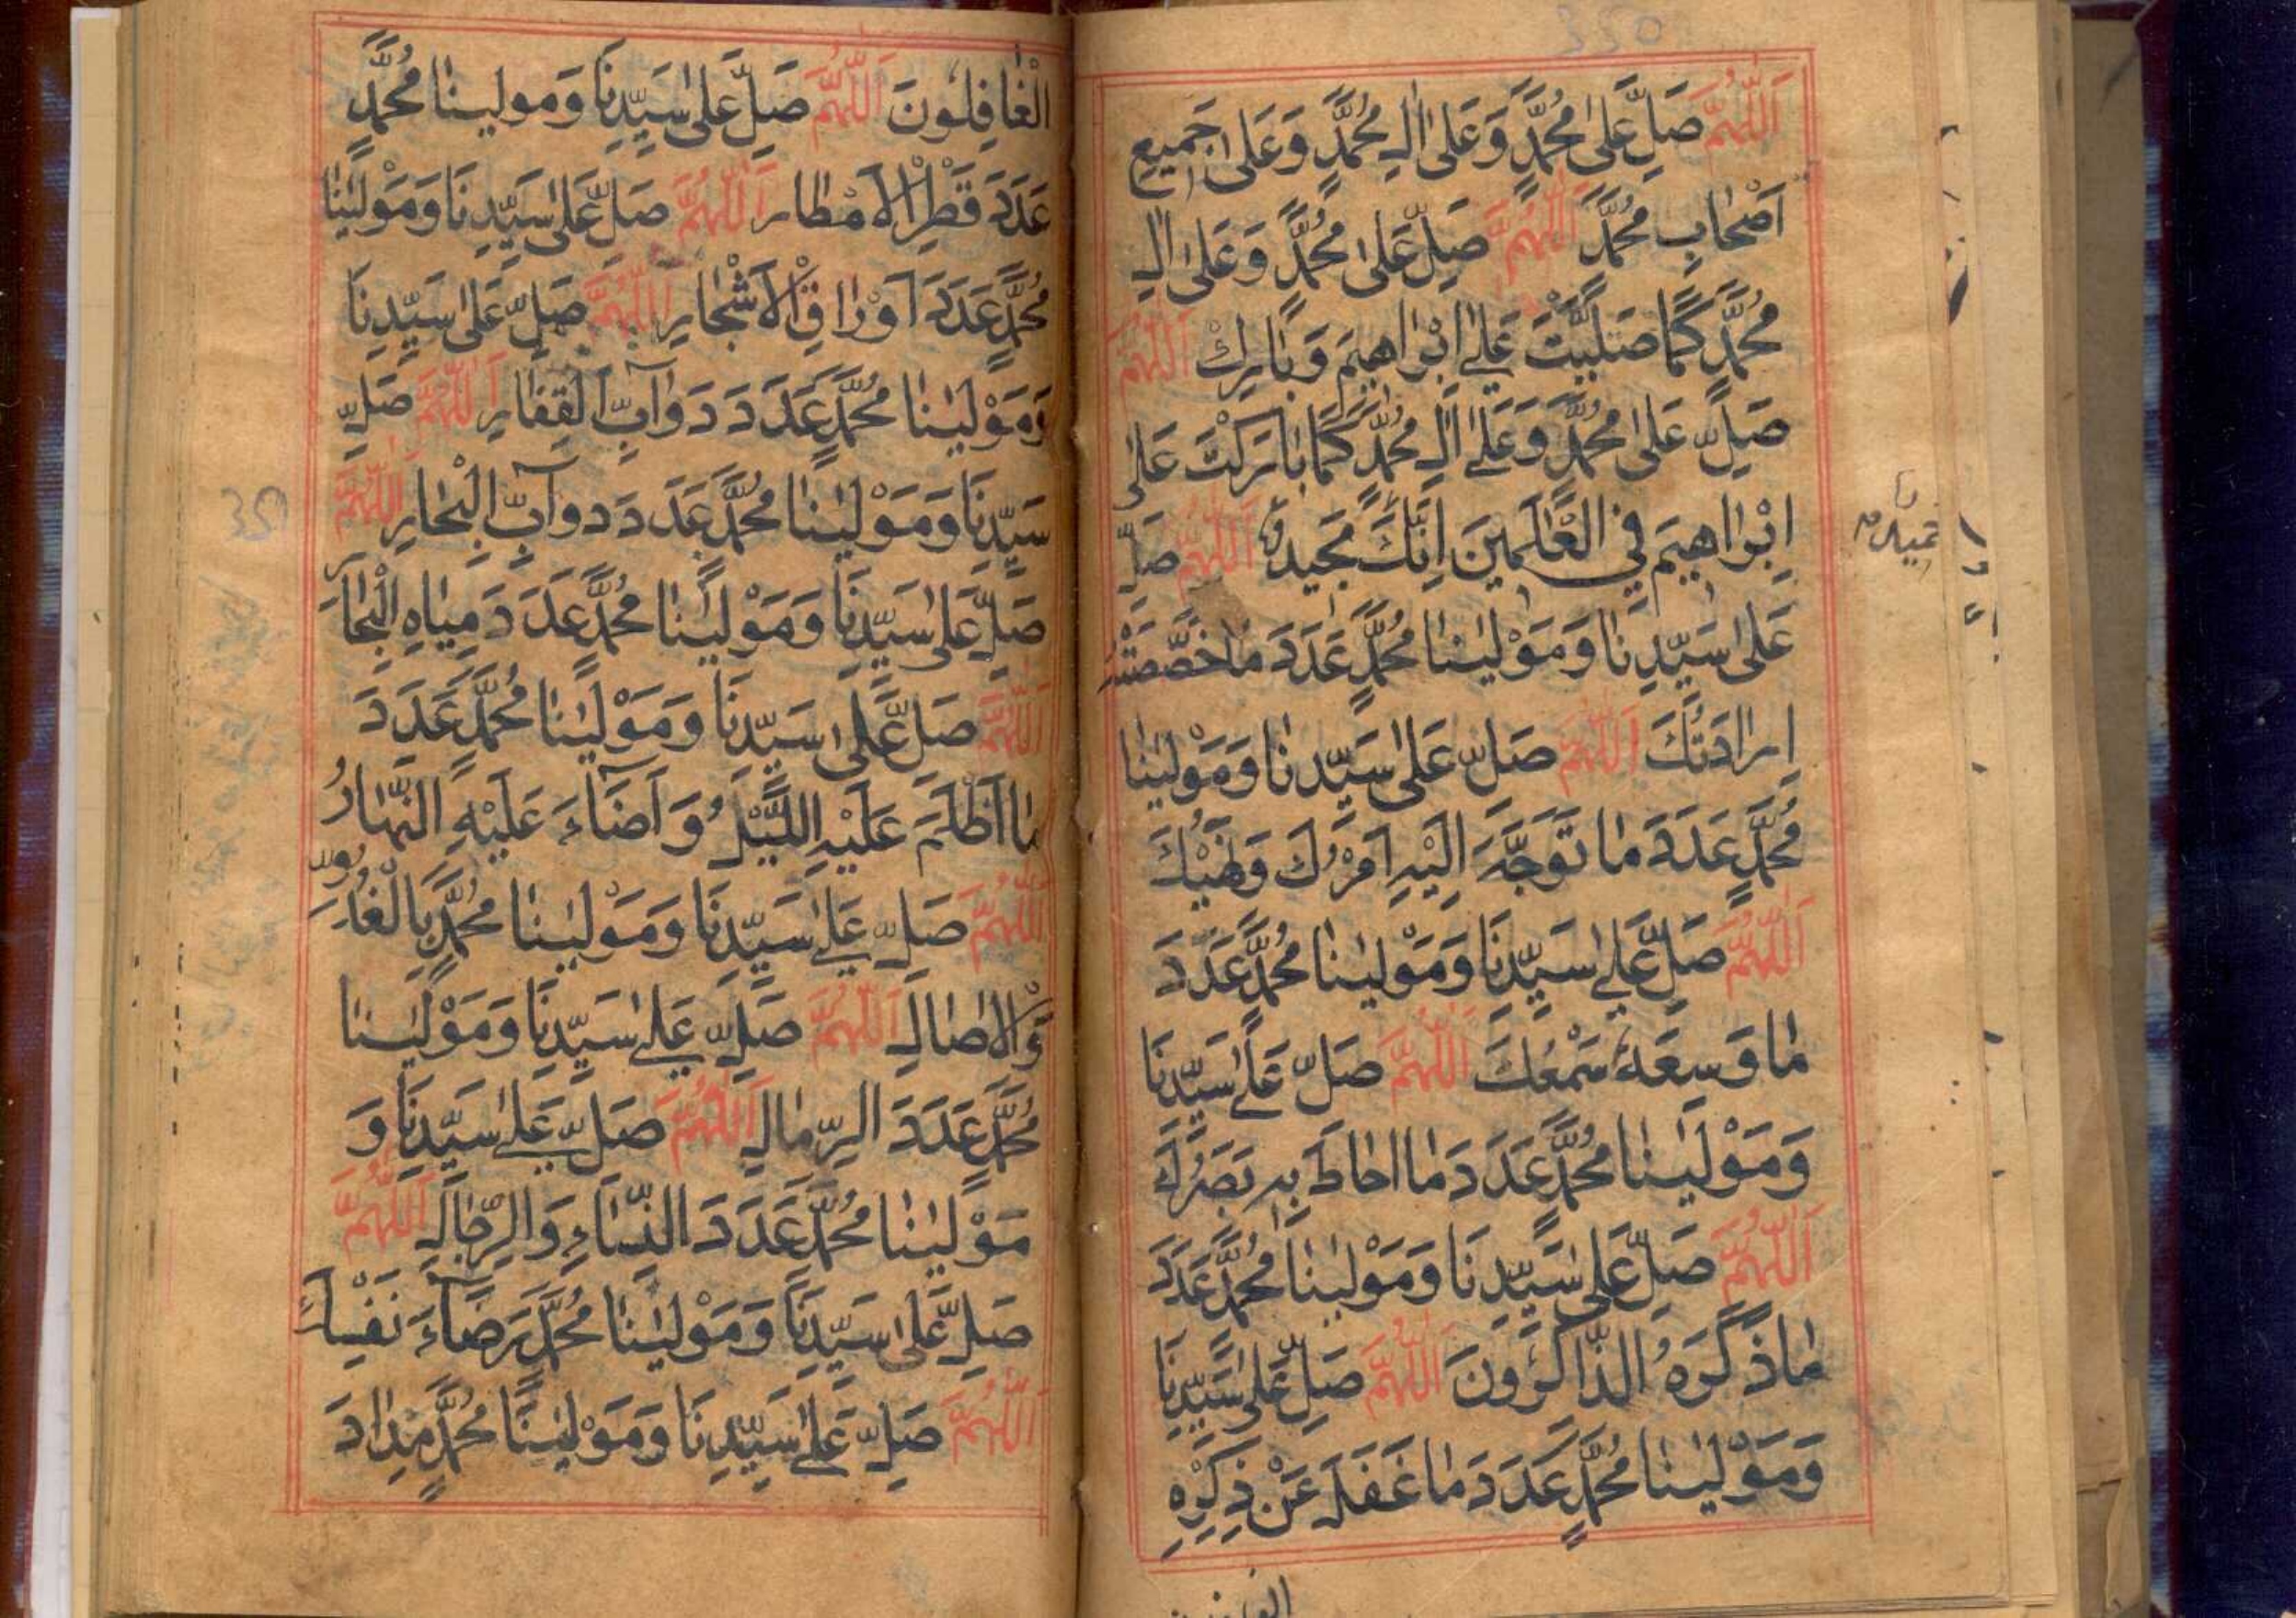 350
اَللّٰهُمَّ صَلِّ عَلٰى مُحَمَّدٍ وَعَلٰى اٰلِ مُحَمَّدٍ وَعَلٰى جَمِيعِ
اَصْحَابِ مُحَمَّدٍ اَللّٰهُمَّ صَلِّ عَلٰى مُحَمَّدٍ وَعَلٰى اٰلِ
مُحَمَّدٍ كَمَا صَلَّيْتَ عَلٰى اِبْرَاهِيمَ وَبَارِكْ اَللّٰهُمَّ
صَلِّ عَلٰى مُحَمَّدٍ وَعَلٰى اٰلِ مُحَمَّدٍ كَمَا بَارَكْتَ عَلٰى
اِبْرَاهِيمَ فِي الْعَالَمِينَ اِنَّكَ مَجِيدٌ اَللّٰهُمَّ صَلِّ
عَلٰى سَيِّدِنَا وَمَوْلٰينَا مُحَمَّدٍ عَدَدَ مَا خَصَّصَتْهُ
اِرَادَتُكَ اَللّٰهُمَّ صَلِّ عَلٰى سَيِّدِنَا وَمَوْلٰينَا
مُحَمَّدٍ عَدَدَ مَا تَوَجَّهَ اِلَيْهِ اَمْرُكَ وَنَهْيُكَ
اَللّٰهُمَّ صَلِّ عَلٰى سَيِّدِنَا وَمَوْلٰينَا مُحَمَّدٍ عَدَدَ
مَا وَسِعَهُ سَمْعُكَ اَللّٰهُمَّ صَلِّ عَلٰى سَيِّدِنَا
وَمَوْلٰينَا مُحَمَّدٍ عَدَدَ مَا اَحَاطَ بِهِ بَصَرُكَ
اَللّٰهُمَّ صَلِّ عَلٰى سَيِّدِنَا وَمَوْلٰينَا مُحَمَّدٍ عَدَدَ
مَا ذَكَرَهُ الذَّاكِرُونَ اَللّٰهُمَّ صَلِّ عَلٰى سَيِّدِنَا
وَمَوْلٰينَا مُحَمَّدٍ عَدَدَ مَا غَفَلَ عَنْ ذِكْرِهِ
الْغَافِلُونَ اَللّٰهُمَّ صَلِّ عَلٰى سَيِّدِنَا وَمَوْلٰينَا مُحَمَّدٍ
عَدَدَ قَطْرِ الْاَمْطَارِ اَللّٰهُمَّ صَلِّ عَلٰى سَيِّدِنَا وَمَوْلٰينَا
مُحَمَّدٍ عَدَدَ اَوْرَاقِ الْاَشْجَارِ اَللّٰهُمَّ صَلِّ عَلٰى سَيِّدِنَا
وَمَوْلٰينَا مُحَمَّدٍ عَدَدَ دَوَآبِّ الْقِفَارِ اَللّٰهُمَّ صَلِّ
سَيِّدِنَا وَمَوْلٰينَا مُحَمَّدٍ عَدَدَ دَوَآبِّ الْبِحَارِ اَللّٰهُمَّ
351
صَلِّ عَلٰى سَيِّدِنَا وَمَوْلٰينَا مُحَمَّدٍ عَدَدَ مِيَاهِ الْبِحَارِ
اَللّٰهُمَّ صَلِّ عَلٰى سَيِّدِنَا وَمَوْلٰينَا مُحَمَّدٍ عَدَدَ
مَا اَظْلَمَ عَلَيْهِ اللَّيْلُ وَاَضَآءَ عَلَيْهِ النَّهَارُ
اَللّٰهُمَّ صَلِّ عَلٰى سَيِّدِنَا وَمَوْلٰينَا مُحَمَّدٍ بِالْغُدُوِّ
وَالْاٰصَالِ اَللّٰهُمَّ صَلِّ عَلٰى سَيِّدِنَا وَمَوْلٰينَا
مُحَمَّدٍ عَدَدَ الرِّمَالِ اَللّٰهُمَّ صَلِّ عَلٰى سَيِّدِنَا وَ
مَوْلٰينَا مُحَمَّدٍ عَدَدَ النِّسَاءِ وَالرِّجَالِ اَللّٰهُمَّ
صَلِّ عَلٰى سَيِّدِنَا وَمَوْلٰينَا مُحَمَّدٍ رِضَآءَ نَفْسِكَ
اَللّٰهُمَّ صَلِّ عَلٰى سَيِّدِنَا وَمَوْلٰينَا مُحَمَّدٍ مِدَادَ